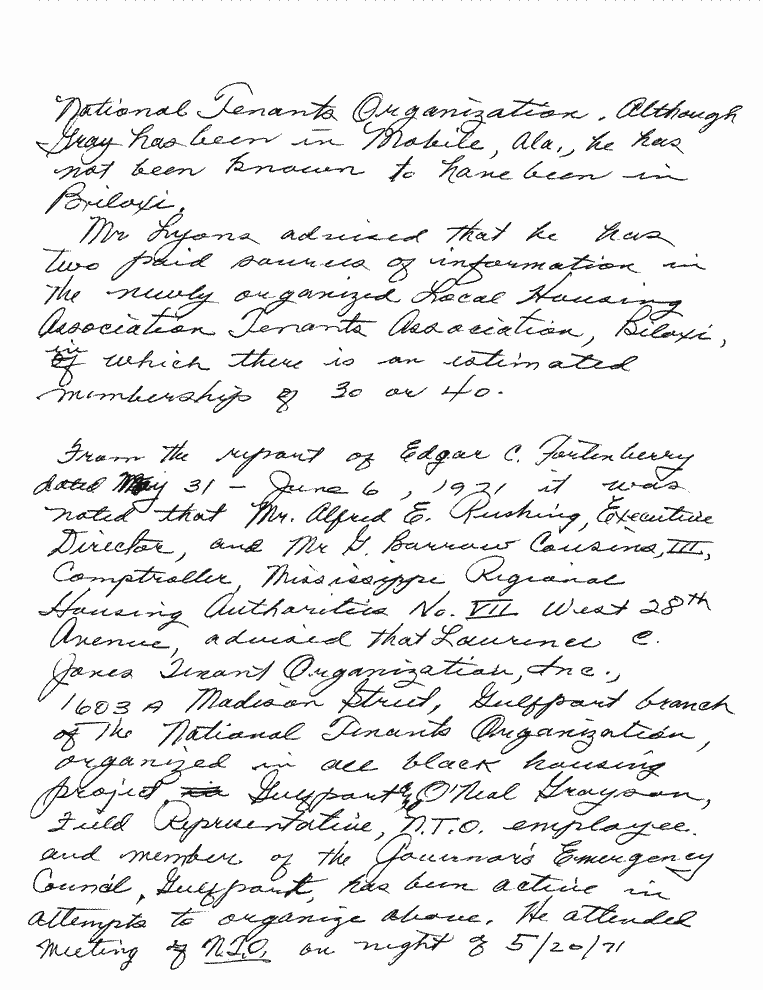 National Tenants Organization. Although
Gray has been in Mobile, Ala., he has
not been known to have been in
Biloxi.
Mr Lyons advised that he has
two paid sources of information in
the newly organized Local Housing
Association Tenants Association, Biloxi,
in of which there is an estimated
membership of 30 or 40.
From the report of Edgar C. Fortenberry
dated May 31 - June 6, 1971 it was
noted that Mr. Alfred E. Rushing, Executive
Director, and Mr G. Barrow Cousins, III,
Comptroller, Mississippi Regional
Housing Authorities No. VII West 28th
Avenue, advised that Laurence C.
Jones Tenant Organization, Inc.,
1603 A Madison Street, Gulfport branch
of the National Tenants Organization,
organized in all black housing
project, in Gulfport, & O'Neal Grayson,
Field Representative, N.T.O. employee.
and member of the Governor's Emergency
Council, Gulfport, has been active in
attempts to organize above. He attended
meeting of N.T.O. on night of 5/20/71